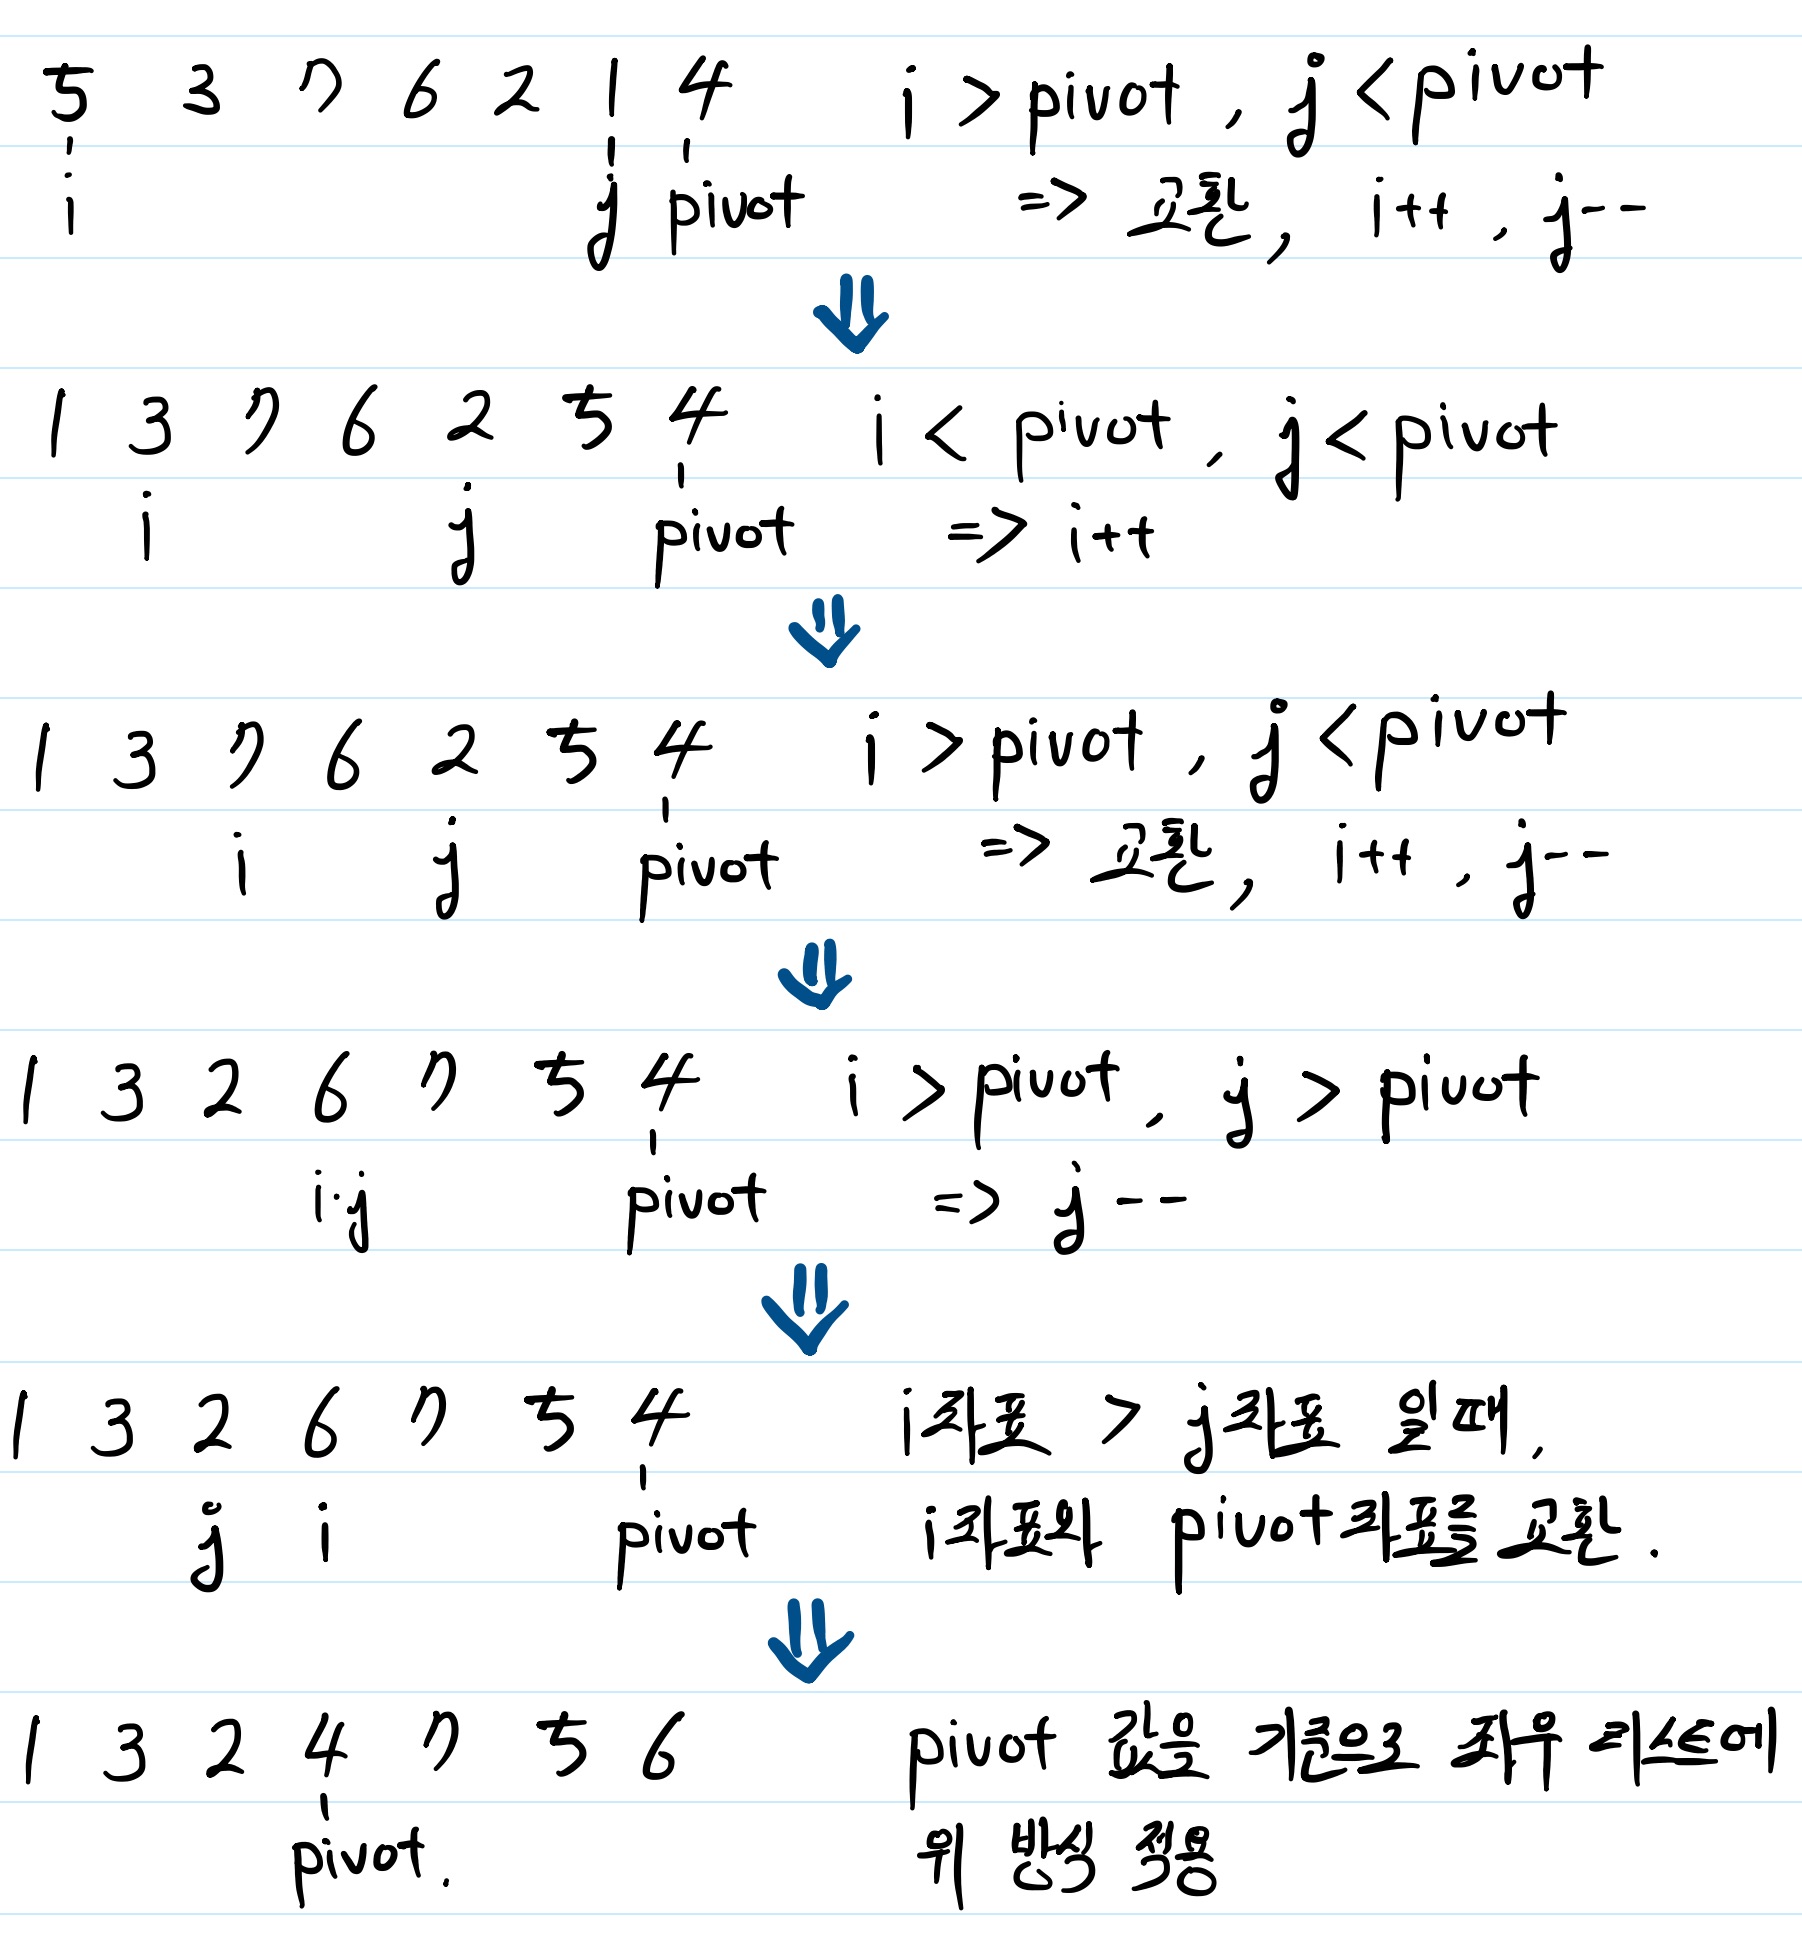 5 3 7 6 2 1 4 i > pivot , j < pivot
i j pivot => 교환, i++ , j--
1 3 7 6 2 5 4 i < pivot , j < pivot
i j pivot => i++
1 3 7 6 2 5 4 i > pivot , j < pivot
i j pivot => 교환, i++ , j--
1 3 2 6 7 5 4 i > pivot , j > pivot
i·j pivot => j--
1 3 2 6 7 5 4 i좌표 > j좌표 일때,
j i pivot i좌표와 pivot좌표를 교환.
1 3 2 4 7 5 6 pivot 값을 기준으로 좌우 리스트에
pivot. 위 방식 적용